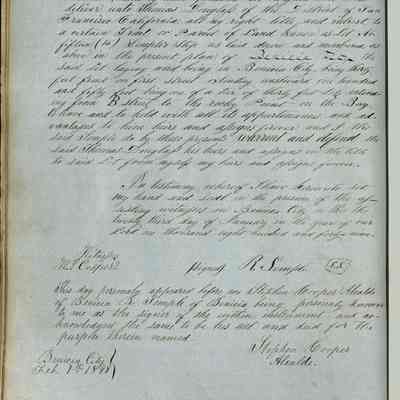 deliver unto Thomas Douglass of the District of San
Francisco California all my right title and interest to
a certain Tract or Parcel of Land known as Lot No
fifteen (15) Semples Slip as laid down and numbered as
above in the present plan of Benicia City the
said Lot laying and being in Benicia City being thirty
feet front on first Street extending eastward one hundred
and fifty feet being one of a tier of thirty feet lots
ing from B street to the rocky Point on the Bay
To have and to hold with all its appurtenances and ad-
vantages to them heirs and assigns forever and I the
said Semple do by these presents warrant and defend the
said Thomas Douglass his heirs and assigns in the title
to said Lot from myself my heirs and assigns forever.
In testimony whereof I have hereunto set
my hand and seal in the presence of the
witness in Benicia City on this the
twenty third day of January in the year of our
Lord one thousand eight hundred and forty nine.
Witness
Cooper
signed R. Semple
This day personally appeared before me Stephen Cooper Alcalde
of Benicia R. Semple of Benicia being personally known
to me as the signer of the within instrument and ac-
knowledged the same to be his act and deed for the
purpose herein named
Stephen Cooper
Alcalde.
Benicia City
Feb. 184